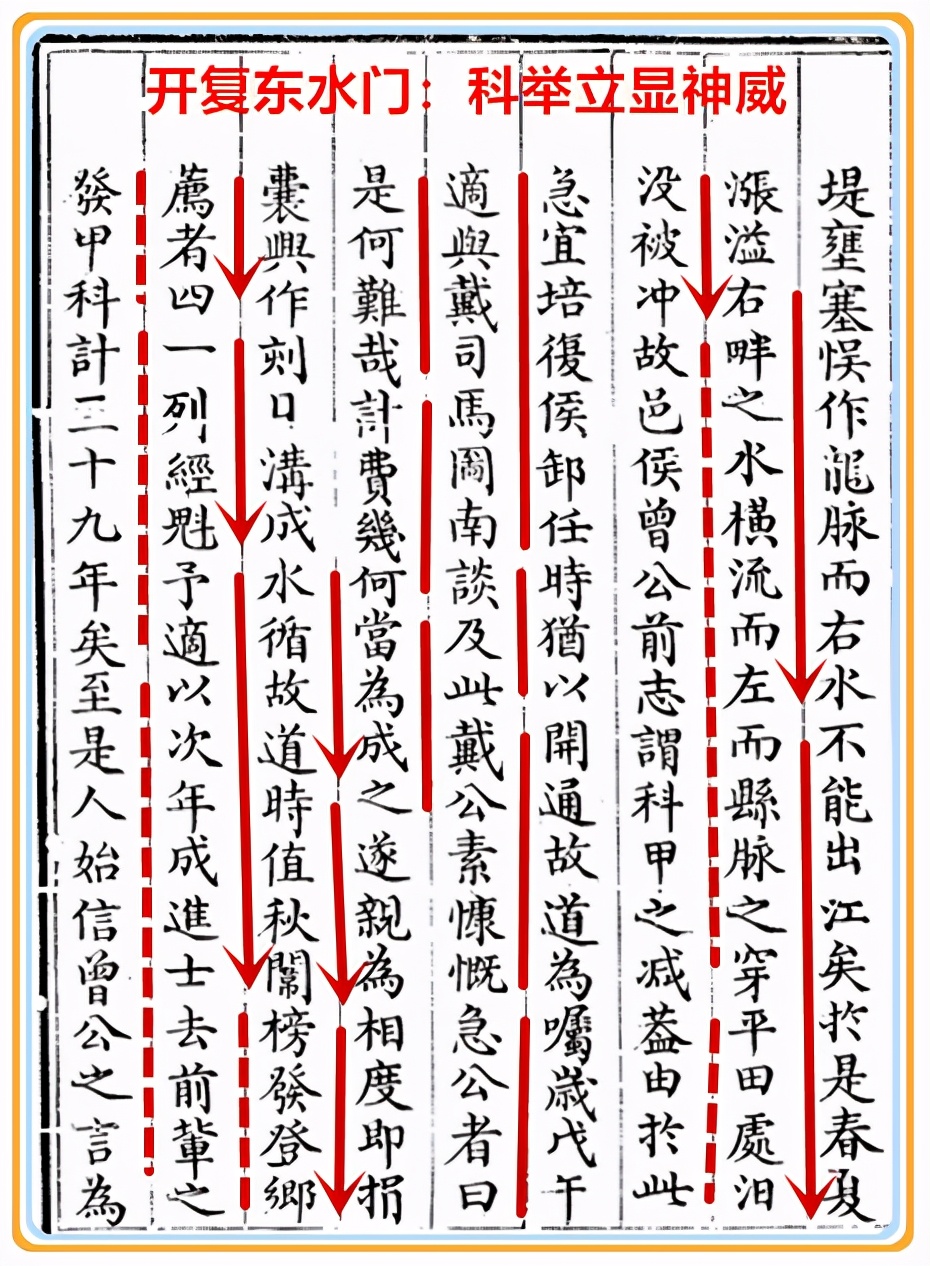 开复东水门：科举立显神威
堤壅塞悮作龍脉而右水不能出江矣於是春夏
漲溢右畔之水橫流而左而縣脉之穿平田處汨
没被冲故邑侯曾公前志謂科甲之减葢由於此
急宜培復侯卸任時猶以開通故道為囑歲戊午
適與戴司馬圖南談及此戴公素慷慨急公者曰
是何難哉計費幾何當為成之遂親為相度即捐
囊興作刻日溝成水循故道時值秋闈榜發登鄉
薦者四一列經魁予適以次年成進士去前輩之
發甲科計二十九年矣至是人始信曾公之言為